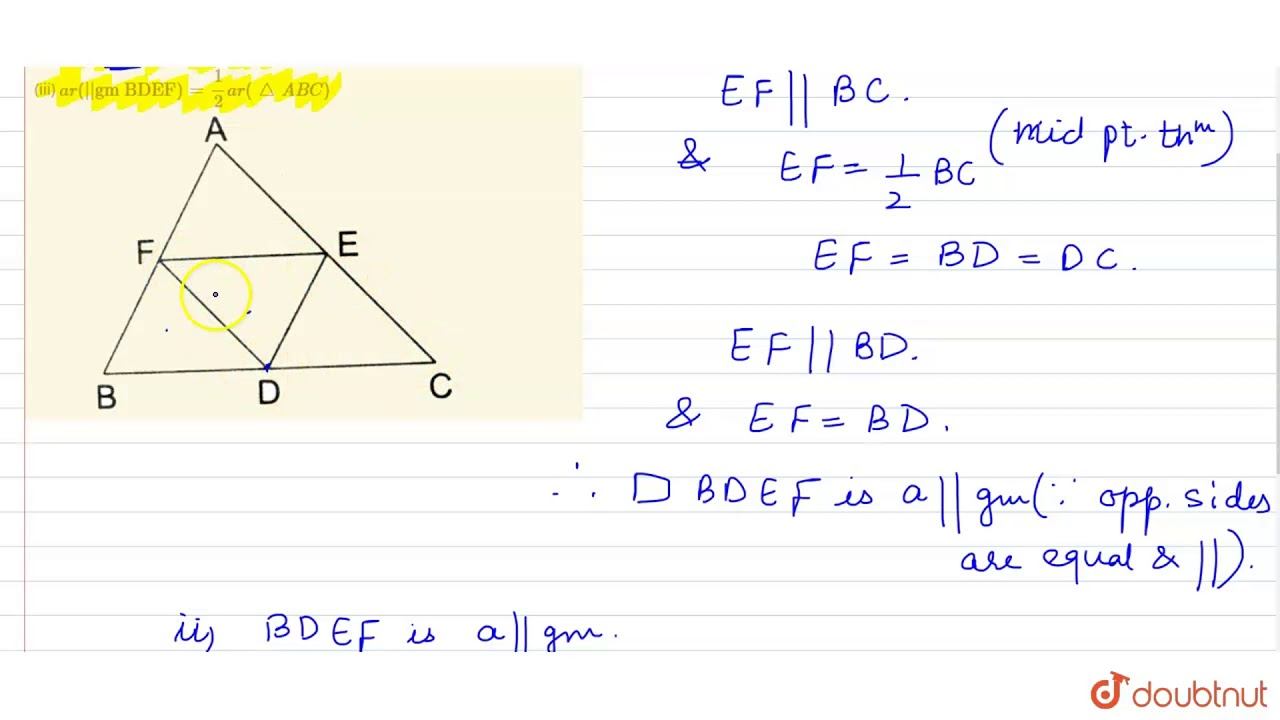 (iii) ar(||gm BDEF) = 1/2 ar( △ ABC)
A
F
E
B
D
C
EF || BC.
(Mid pt. thm)
& EF = 1/2 BC
EF = BD = DC.
EF || BD.
& EF = BD.
∴ ▱ BDEF is a ||gm (∵ opp. sides
are equal & ||).
ii) BDEF is a ||gm.
doubtnut